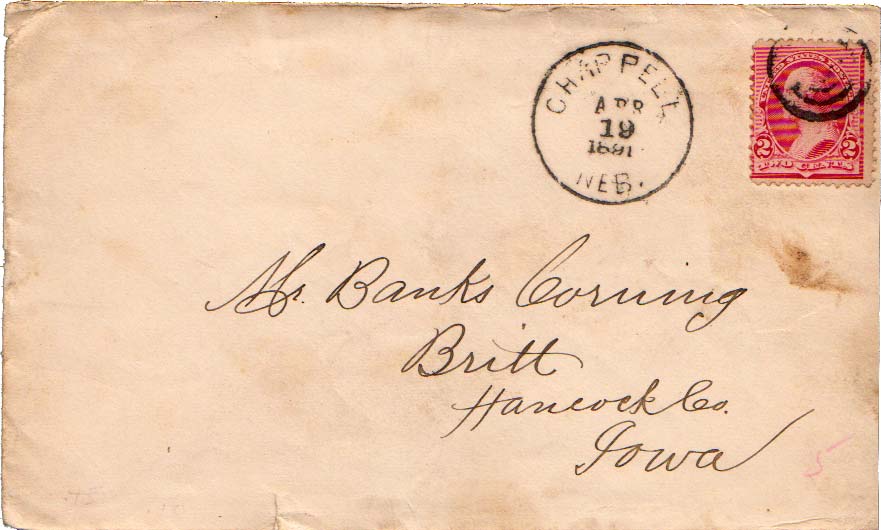 CHAPPELL
APR
19
1891
NEB.
UNITED STATES POSTAGE
2 2
TWO CENTS
Mr. Banks Corning
Britt
Hancock Co.
Iowa
5